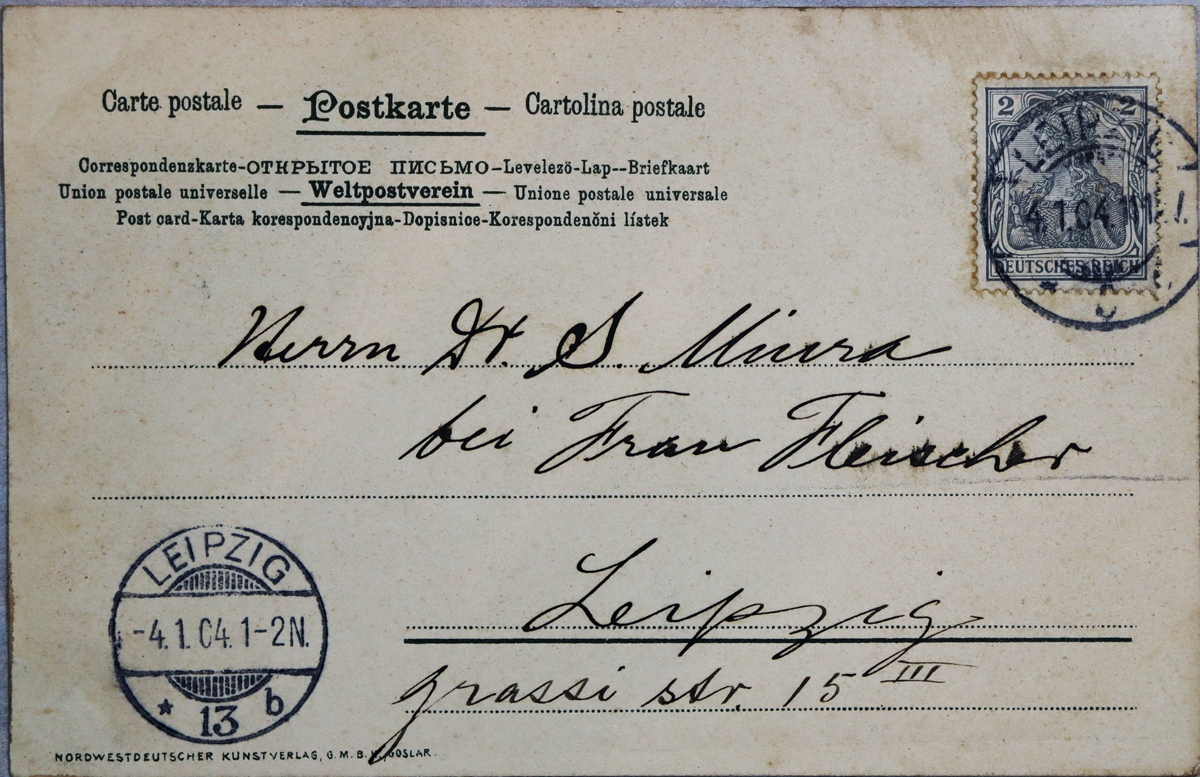 Carte postale — Postkarte — Cartolina postale
Correspondenzkarte-ОТКРЫТОЕ ПИСЬМО-Levelezö-Lap--Briefkaart
Union postale universelle — Weltpostverein — Unione postale universale
Post card-Karta korespondencyjna-Dopisnice-Korespondenčni lístek
2 2
DEUTSCHES REICH
LEIPZIG
4.1.04.11
Herrn Dr. S. Miura
bei Frau Fleischer
Leipzig
grassi str. 15 III
LEIPZIG
-4.1.04.1-2N.
* 13 b
NORDWESTDEUTSCHER KUNSTVERLAG, G.M.B.H. GOSLAR.